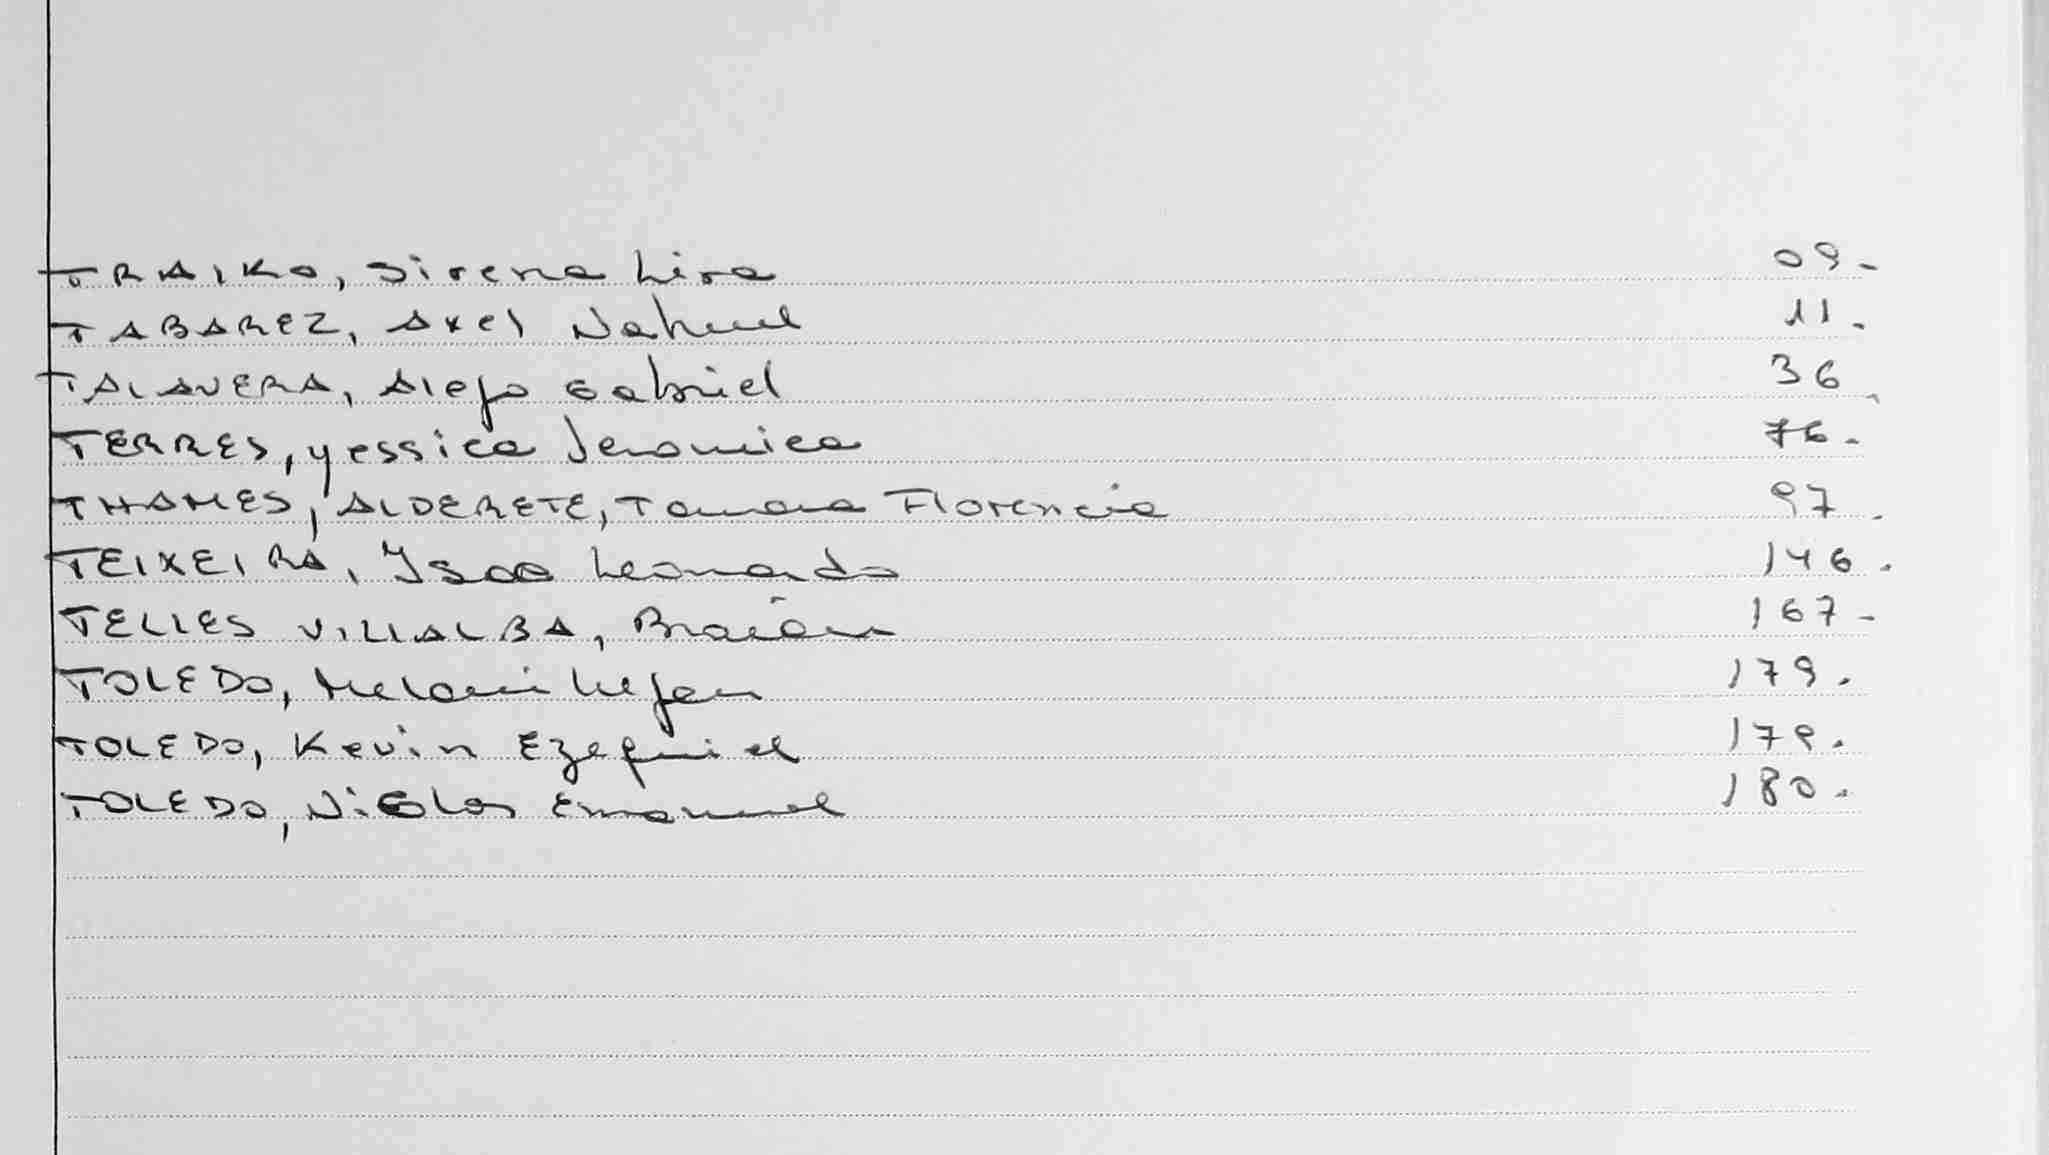 TRAIKO, Sirena Lira 09-
TABAREZ, Axel Nahuel 11.
TALAVERA, Alejo Gabriel 36
TERRES, yessica Veronica 76.
THAMES, ALDERETE, Tamara Florencia 97.
TEIXEIRA, Isaac Leonardo 146.
TELLES VILLALBA, Braian 167-
TOLEDO, Melani Lujan 179.
TOLEDO, Kevin Ezequiel 179.
TOLEDO, Nicolas Emanuel 180.